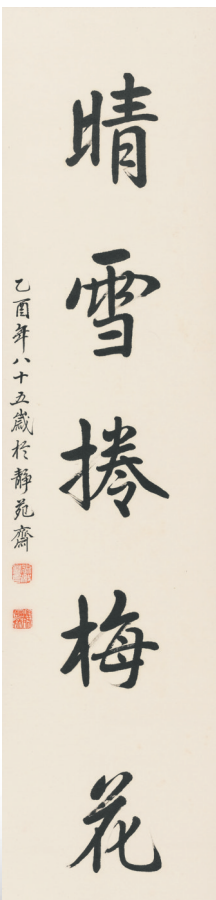 晴雪捲梅花
乙酉年八十五歲於靜苑齋